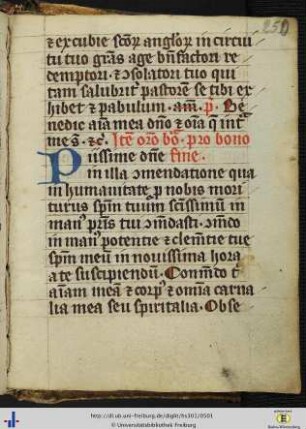 251
⁊ excubie scōꝝ angloꝝ in circui
tu tuo grās age bn̄factori re
demptori ⁊ ꝯsolatori tuo qui
tam salubrit̄ pastorē se tibi ex
hibet ⁊ pabulum · am̄ · p̄ · Be
nedic aīa mea dn̄o ⁊ oīa q̄ int̄
me s̄ · ⁊c̄ · Itē orō bo̅ · pro bono
Piissime dn̄e fine ·
in illa ꝯmendatione qua
in humanitate ꝓ nobis mori
turus sp̄m tuum scīssimū in
manꝰ pr̄is tui ꝯmdasti · ꝯmdo
in manꝰ potentie ⁊ clem̄tie tue
sp̄m meū in nouissima hora
a te suscipiendū · Conmdo t̄
aīam meā ⁊ corpꝰ ⁊ omīa carna
lia mea seu spiritalia · Obse
http://dl.ub.uni-freiburg.de/diglit/hs302/0501
© Universitätsbibliothek Freiburg